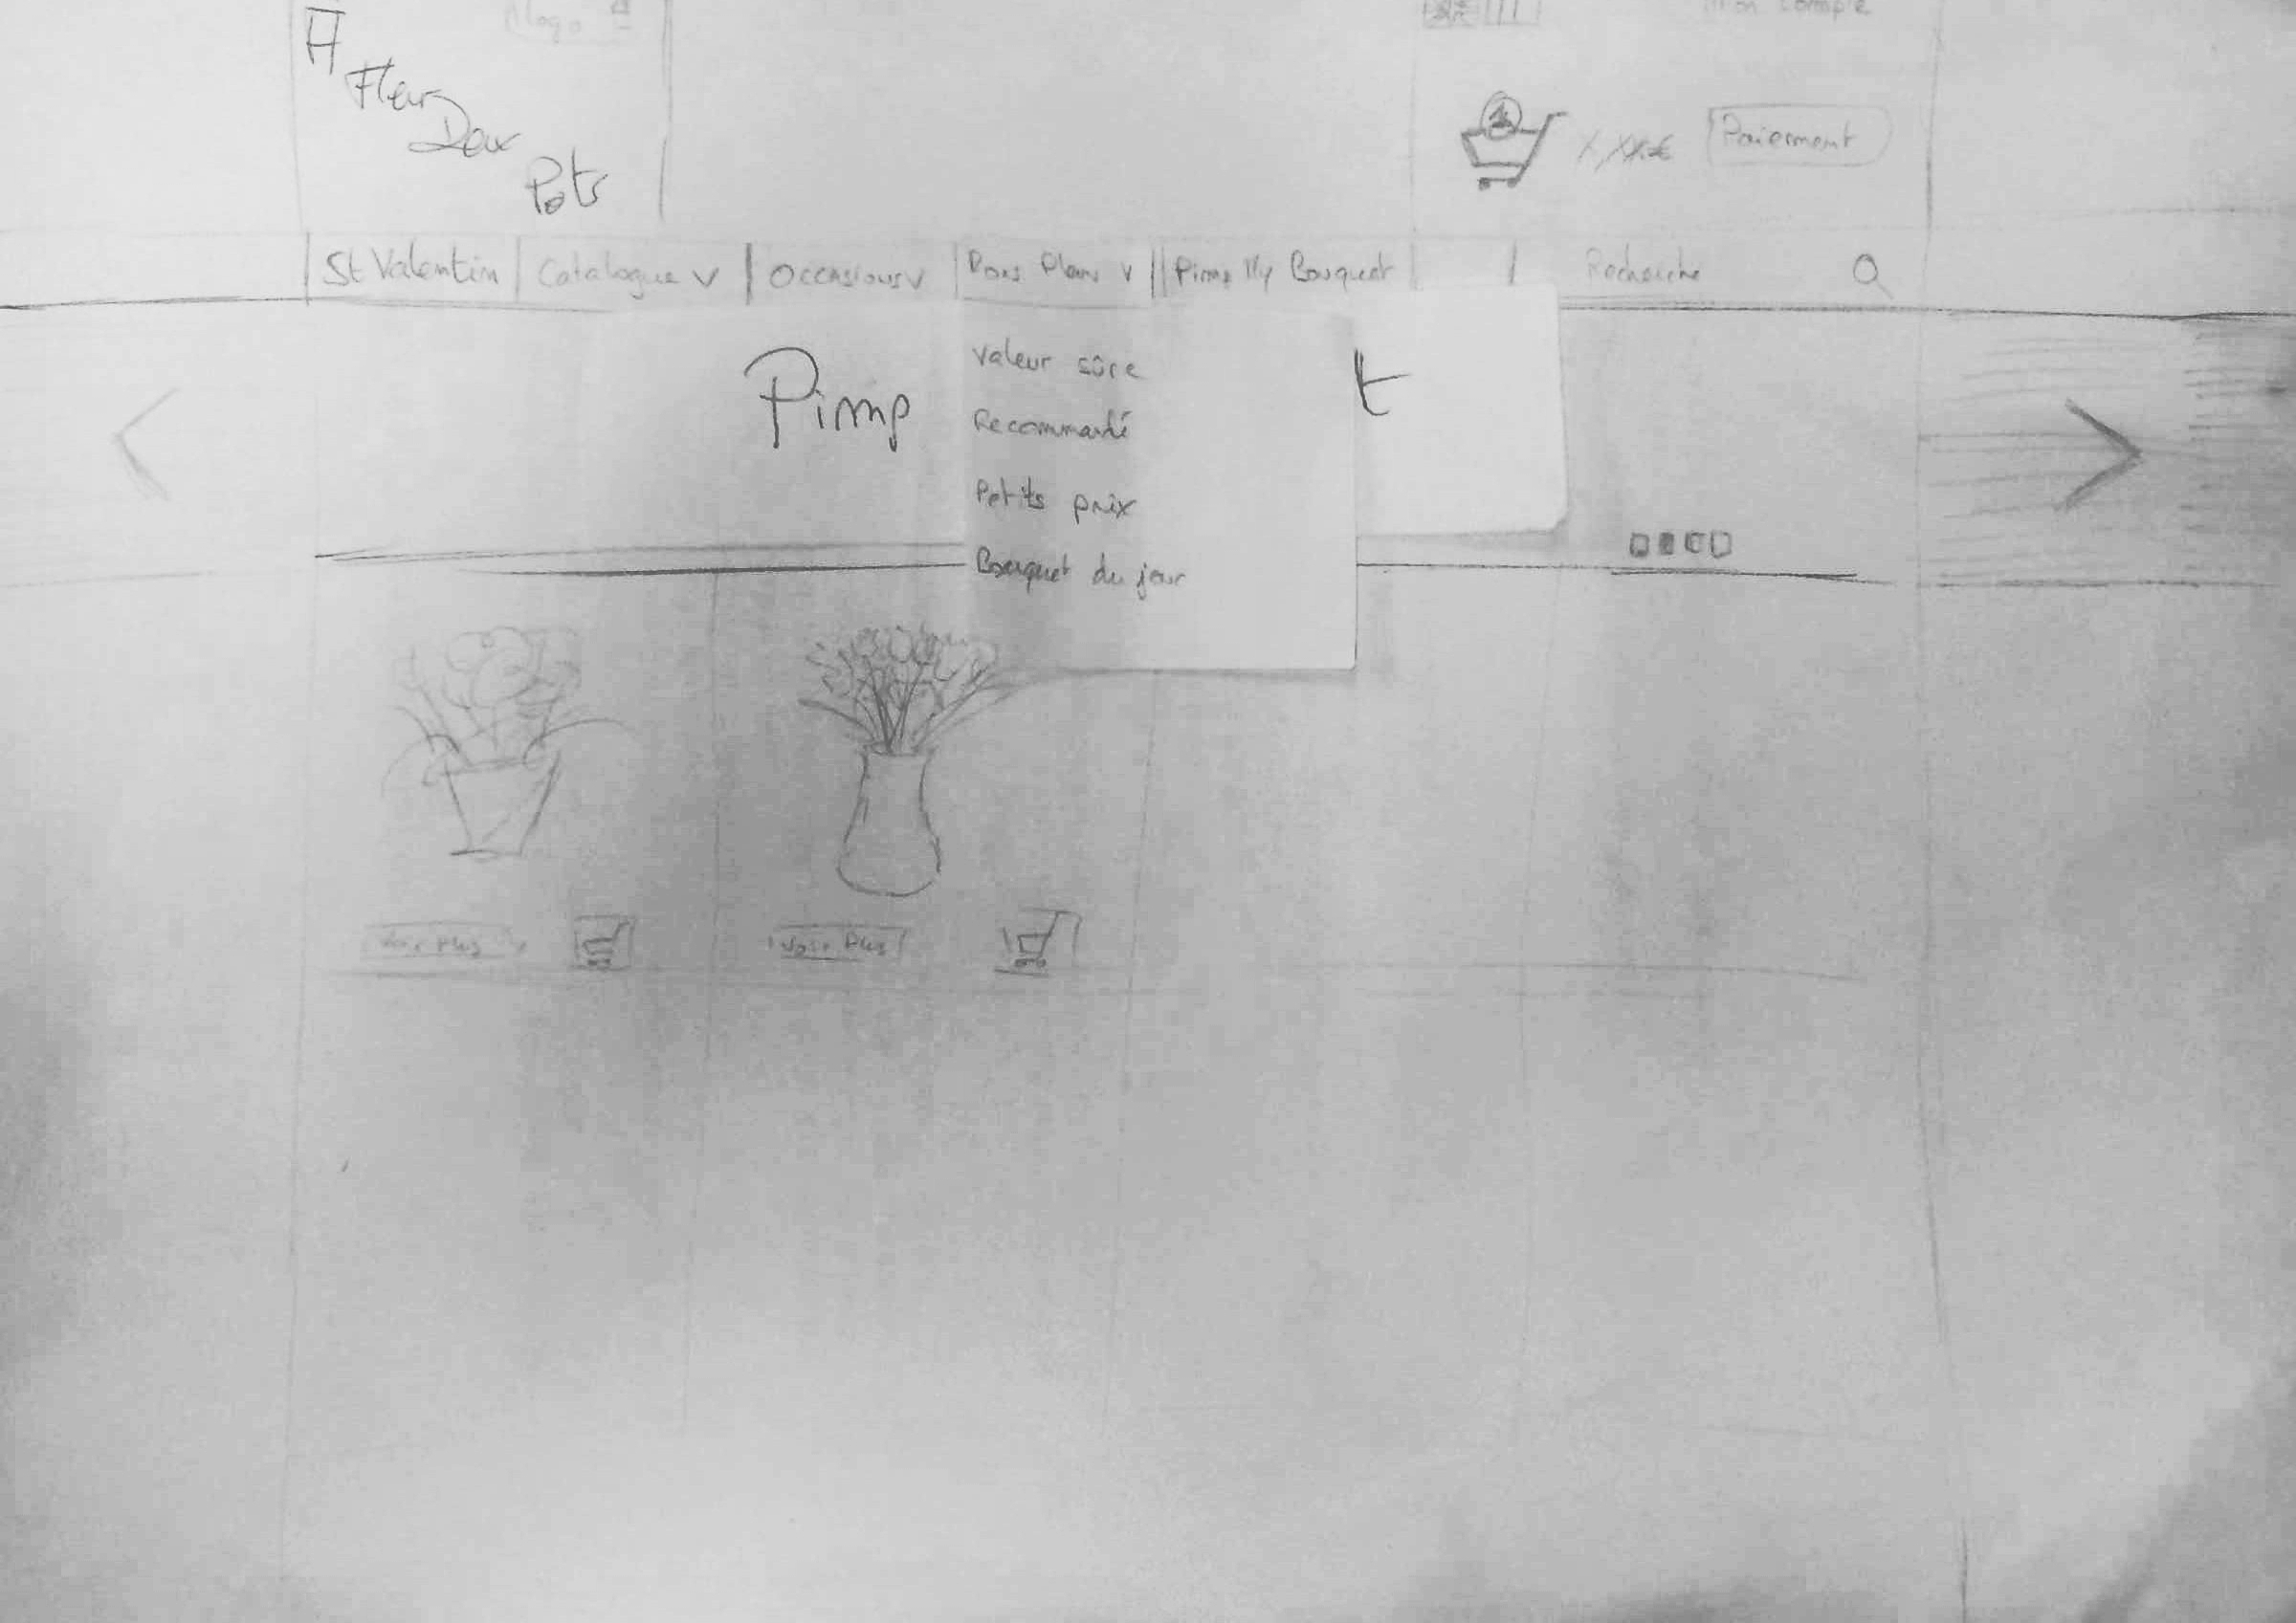 Logo
Mon Compte
A
Fleur
Deux
Pots
1
X,XX€
Paiement
St Valentin
Catalogue V
Occasions V
Bons Plans V
Pimp My Bouquet
Recherche
Pimp
t
Valeur sûre
Recommandé
Petits prix
Bouquet du jour
Voir Plus
Voir Plus